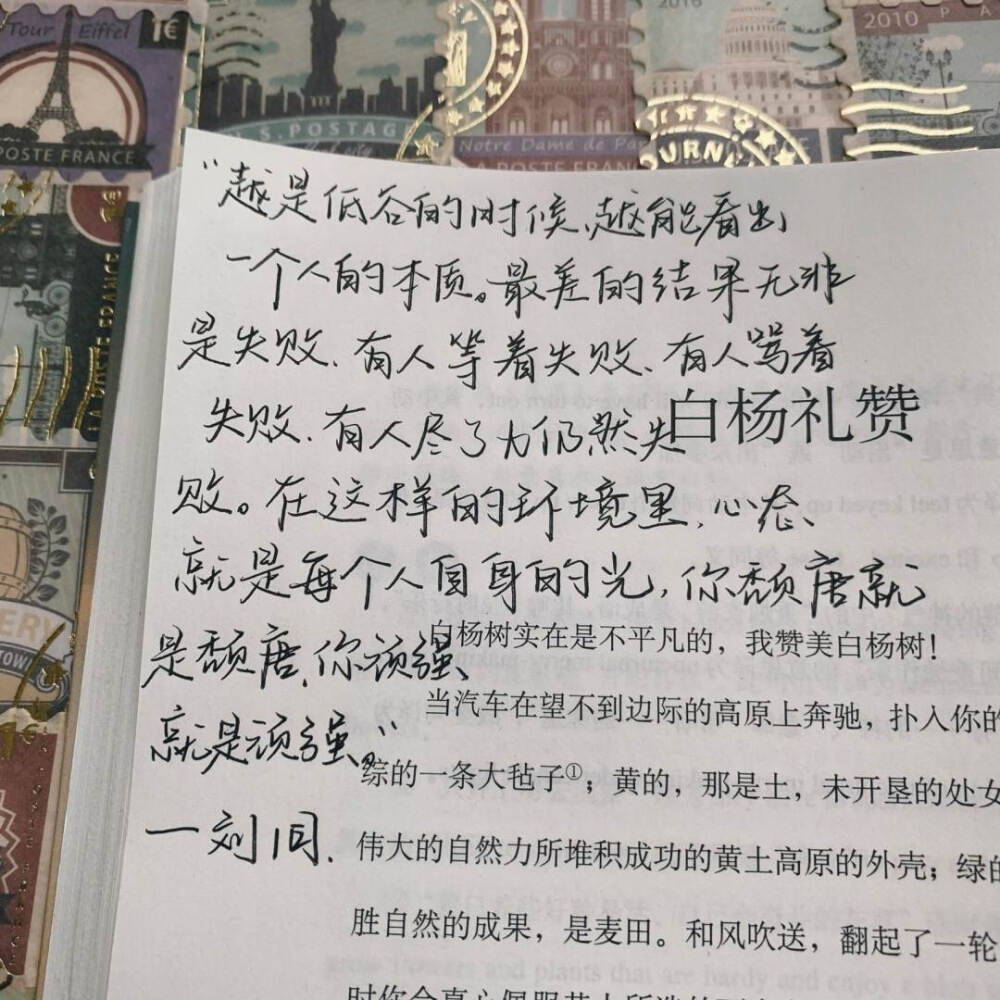 Tour Eiffel 1€
POSTE FRANCE
U.S. POSTAG
2016
Notre Dame de Pa
LA POSTE FRANCE
URNA
2010 P A
LA POSTE FRANCE
“越是低谷的时候,越能看出
一个人的本质。最差的结果无非
是失败、有人等着失败、有人骂着
失败、有人尽了力仍然失
败。在这样的环境里,心态、
就是每个人自身的光,你颓唐就
是颓唐,你顽强、
就是顽强。”
一刘同、
白杨礼赞
白杨树实在是不平凡的,我赞美白杨树!
当汽车在望不到边际的高原上奔驰,扑入你的
综的一条大毡子①;黄的,那是土,未开垦的处女
伟大的自然力所堆积成功的黄土高原的外壳;绿的
胜自然的成果,是麦田。和风吹送,翻起了一轮